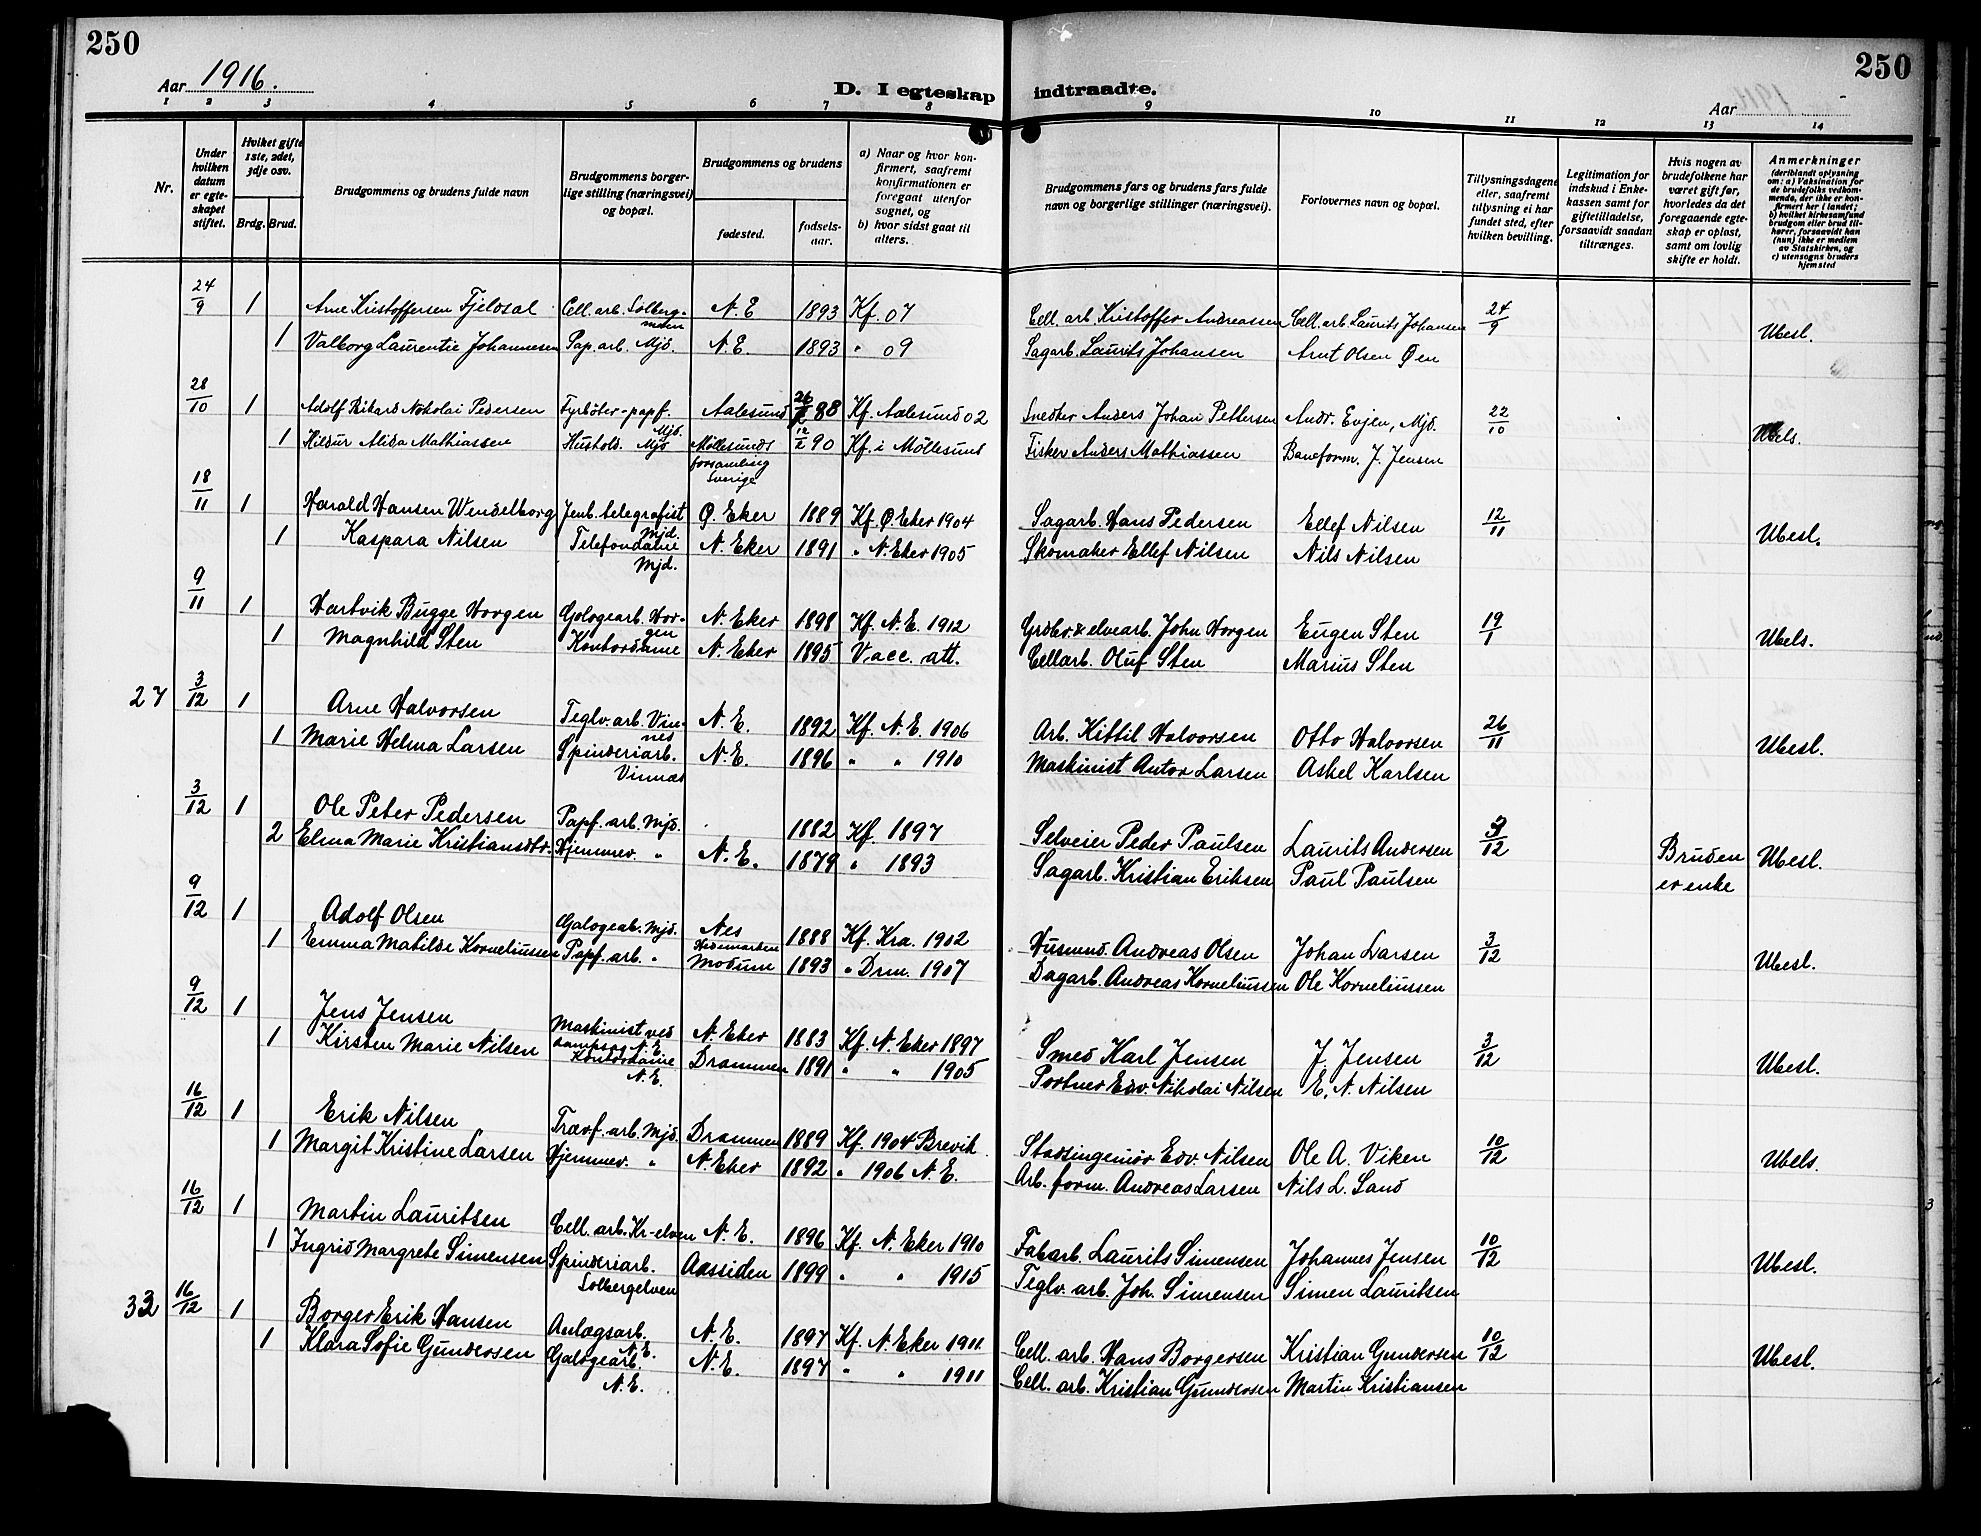 250
250
Aar 1916.
D. I egteskap indtraadte.
Aar
1 2 3 4 5 6 7 8 9 10 11 12 13 14
Nr.
Under hvilken datum er egteskapet stiftet.
Hvilket gifte 1ste, 2det, 3dje osv.
Brdg. Brud.
Brudgommens og brudens fulde navn
Brudgommens borgerlige stilling (næringsvei) og bopæl.
Brudgommens og brudens
fødested.
fødselsaar.
a) Naar og hvor konfirmert, saafremt konfirmationen er foregaat utenfor sognet, og
b) hvor sidst gaat til alters.
Brudgommens fars og brudens fars fulde navn og borgerlige stillinger (næringsvei).
Forlovernes navn og bopæl.
Tillysningsdagene eller, saafremt tillysning ei har fundet sted, efter hvilken bevilling.
Legitimation for indskud i Enkekassen samt for giftetilladelse, forsaavidt saadan tiltrænges.
Hvis nogen av brudefolkene har været gift før, hvorledes da det foregaaende egteskap er opløst, samt om lovlig skifte er holdt.
Anmerkninger (deriblandt oplysning om: a) Vaksination for de brudefolks vedkommende, der ikke er konfirmert her i landet; b) hvilket kirkesamfund brudgom eller brud tilhører, forsaavidt han (hun) ikke er medlem av Statskirken, og c) utensogns bruders hjemsted
24/9 1 Arne Kristoffersen Fjeldsal Cell. arb. Solbergmoen N. E 1893 Kf. 07 Cell. arb. Kristoffer Andreassen Cell. arb. Laurits Johansen 24/9 Ubesl.
1 Valborg Laurentie Johannesen Pap. arb. Mjd. N. E. 1893 " 09 Sagarb. Laurits Johansen Arnt Olsen Øen
28/10 1 Adolf Rikard Nikolai Pedersen Fyrbøter-papf. Mjd. Aalesund 88 Kf. Aalesund 02 Snedker Anders Johan Pettersen Andr. Evjen, Mjd. 22/10 Ubels.
1 Hildur Alida Mathiassen Hushold. Mjd Møllesunds forsamling Sverige 90 Kf. i Möllesund Fisker Anders Mathiassen Baneform. J. Jensen
18/11 1 Harald Hansen Wendelborg Jenb. telegrafist Mjd. Ø. Eker 1889 Kf. Ø. Eker 1904 Sagarb. Hans Pedersen Ellef Nilsen 12/11 Ubesl.
1 Kaspara Nilsen Telefondame Mjd. N. Eker 1891 " N. Eker 1905 Skomaker Ellef Nilsen Nils Nilsen
9/11 1 Hartvik Bugge Horgen Galogearb. Horgen N. Eker 1898 Kf. N. E. 1912 Grdbr & elvearb. John Horgen Eugen Sten 19/1 Ubels.
1 Magnhild Sten Kontordame N. Eker 1895 Vacc. att. Cellarb. Oluf Sten Marius Sten
27 3/12 1 Arne Halvorsen Teglv. arb. Vinnes N. E. 1892 Kf. N. E. 1906 Arb. Kittil Halvorsen Otto Halvorsen 26/11 Ubesl.
1 Marie Helma Larsen Spinderiarb. Vinnæs N. E. 1896 " " 1910 Maskinist Anton Larsen Askel Karlsen
3/12 1 Ole Peter Pedersen Papf. arb. Mjd. 1882 Kf. 1897 Selveier Peder Paulsen Laurits Andersen 3/12 Bruden er enke Ubesl.
2 Elma Marie Kristiansdtr. Hjemmev. " N. E. 1879 " 1893 Sagarb. Kristian Eriksen Paul Paulsen
9/12 1 Adolf Olsen Galogeab. Mjd. Nes Hedemarken 1888 Kf. Kra. 1902 Husmnd. Andreas Olsen Johan Larsen 3/12 Ubesl.
1 Emma Matilde Korneliussen Papf. arb. " Modum 1893 " Drm. 1907 Dagarb. Andreas Korneliussen Ole Korneliussen
9/12 1 Jens Jensen Maskinist ved dampsag N. E. N. Eker 1883 Kf. N. Eker 1897 Smed Karl Jensen J. Jensen 3/12 Ubesl.
1 Kirsten Marie Nilsen Kontordame N. E. Drammen 1891 " " 1905 Portner Edv. Nikolai Nilsen E. N. Nilsen
16/12 1 Erik Nilsen Træsf. arb. Mjd. Drammen 1889 Kf. 1904 Brevik Stadsingeniør Edv. Nilsen Ole A. Viken 10/12 Ubels.
1 Margit Kristine Larsen Hjemmev. " N. Eker 1892 " 1906 N. E. Arb. form. Andreas Larsen Nils L. Sand
16/12 1 Martin Lauritsen Cell. arb. Kr-elven N. E. 1896 Kf. N. Eker 1910 Fabarb. Laurits Simensen Johannes Jensen 10/12 Ubesl.
1 Ingrid Margrete Simensen Spinderiarb. Solbergelven Aassiden 1899 " " 1915 Teglv. arb. Joh. Simensen Simen Lauritsen
33 16/12 1 Borger Erik Hansen Anlægsarb. N. E. N. E. 1897 Kf. N. Eker 1911. Cell. arb. Hans Borgersen Kristian Gundersen 10/12 Ubesl.
1 Klara Sofie Gundersen Galogearb. N. E. N. E. 1897 " " 1911 Cell. arb. Kristian Gundersen Martin Kristiansen